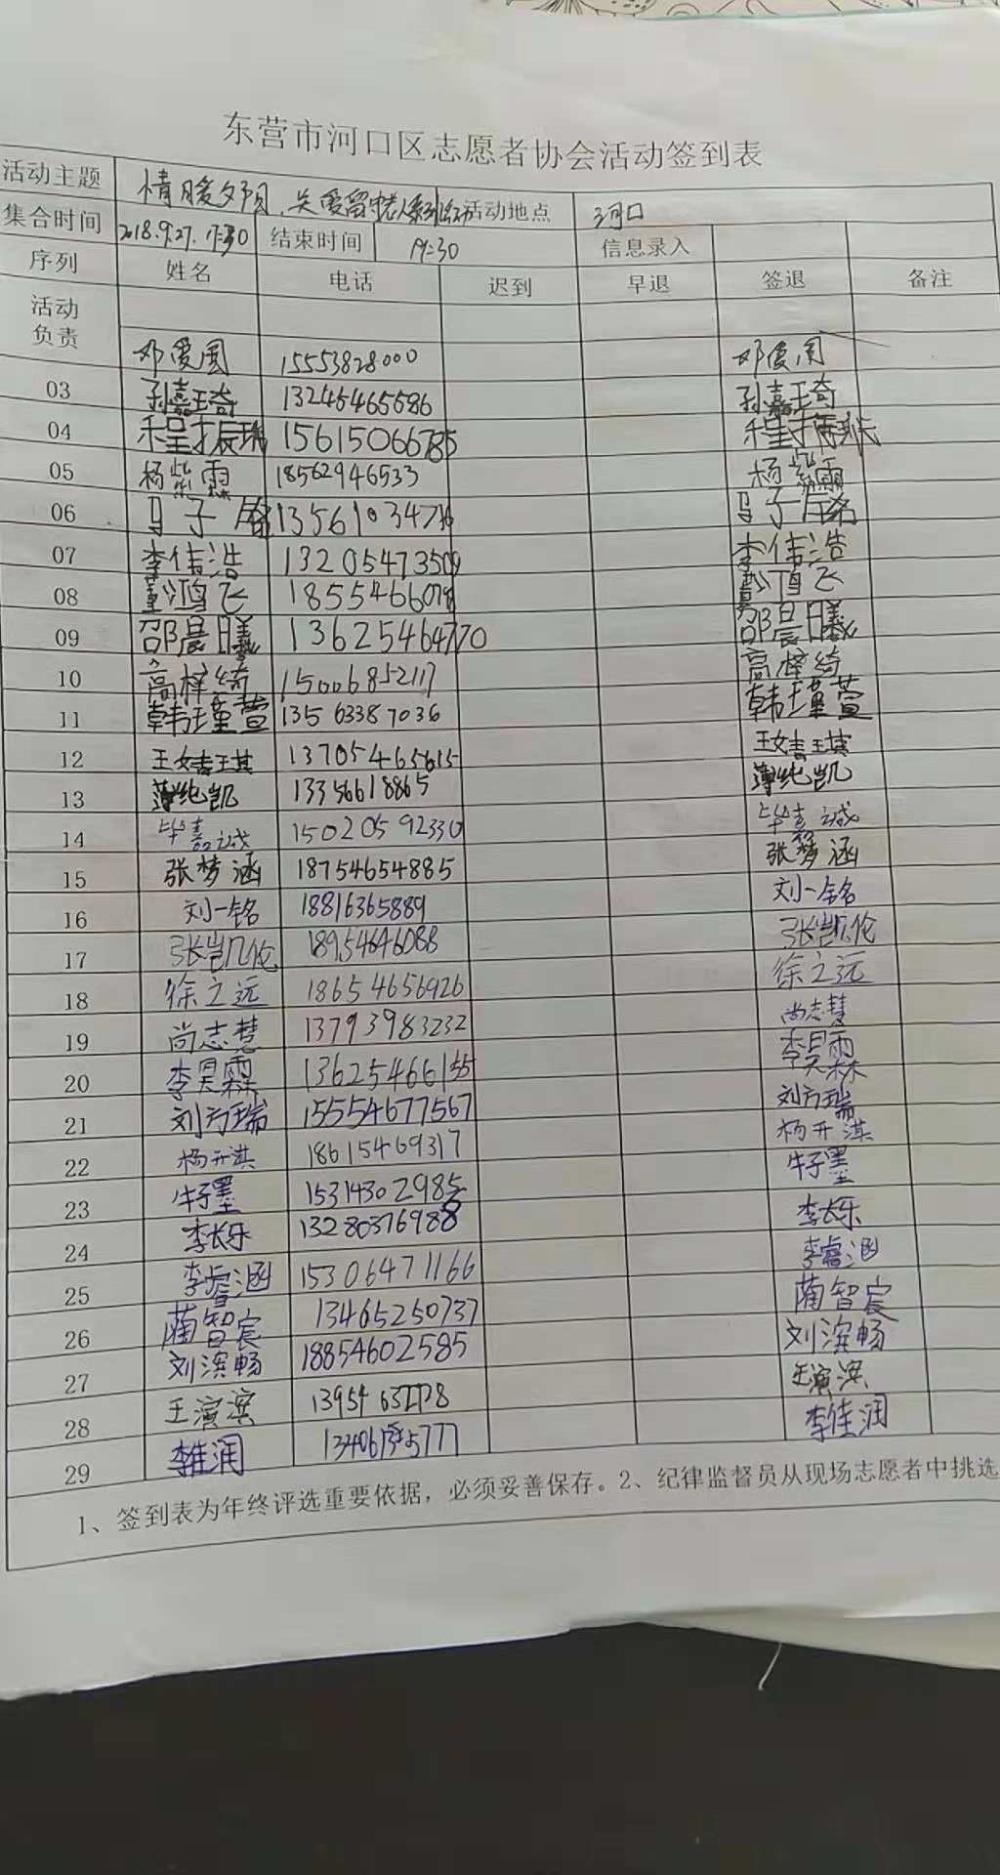 东营市河口区志愿者协会活动签到表
活动主题 情暖夕阳、关爱留守老人系列活动 活动地点 河口
集合时间 2018.9.27. 17:30 结束时间 19:30 信息录入
序列 姓名 电话 迟到 早退 签退 备注
活动负责
邓爱国 15553828000 邓爱国
03 孙嘉琦 13245465586 孙嘉琦
04 程振瑞 15615066785
05 杨紫霖 18562946533 杨紫霖
06 马子
07 李伟浩 13205473509 李伟浩
08 董鸿飞 董鸿飞
09 邵晨曦 13625464770 邵晨曦
10 高梓绮 15006852117 高梓绮
11 韩瑾萱 13563387036 韩瑾萱
12 王婧琪 13705465615 王婧琪
13 薄纯凯 13356618865 薄纯凯
14 毕嘉诚 15020592330 毕嘉诚
15 张梦涵 18754654885 张梦涵
16 刘一铭 18816365889 刘一铭
17 张凯伦 18954646088 张凯伦
18 徐之远 18654656926 徐之远
19 尚志慧 13793983232 尚志慧
20 李昊霖 13625466155 李昊霖
21 刘方瑞 15554677567 刘方瑞
22 杨开淇 18615469317 杨开淇
23 牛子墨 15314302985 牛子墨
24 李长乐 13280376988 李长乐
25 李睿涵 15306471166 李睿涵
26 蔺智宸 13465250737 蔺智宸
27 刘滨畅 18854602585 刘滨畅
28 王演滨 王演滨
29 李佳润 李佳润
1、签到表为年终评选重要依据，必须妥善保存。2、纪律监督员从现场志愿者中挑选